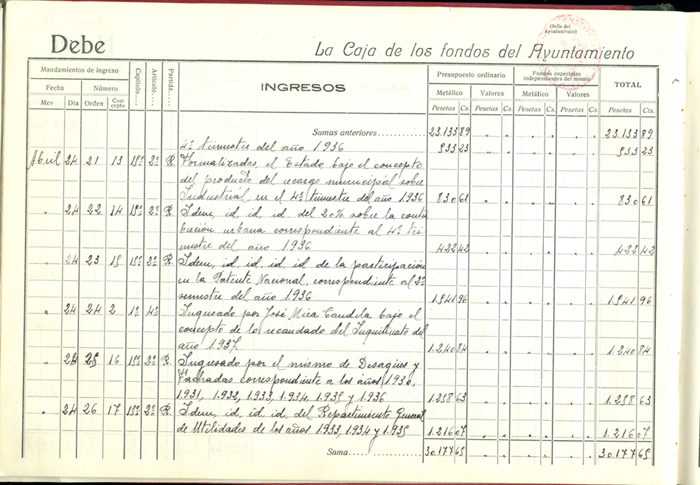 (Sello del
Ayuntamiento)
Debe
La Caja de los fondos del Ayuntamiento
Mandamientos de ingreso
Fecha
Número
Mes
Día
Orden
Concepto
Capítulo
Artículo
Partida
INGRESOS
Presupuesto ordinario
Metálico
Valores
Pesetas Cs. Pesetas Cs.
Fondos especiales
independientes del mismo
Metálico
Valores
Pesetas Cs. Pesetas Cs.
TOTAL
Pesetas Cts.
Sumas anteriores 23.133 89 23.133 89
4º trimestre del año 1936 933 23 933 23
Abril 24 21 13 15º 2º R. Formalizadas, el Estado bajo el concepto
del producto del recargo municipal sobre
Industrial en el 4º trimestre del año 1936 830 61 830 61
" 24 22 14 15º 2º R. Idem, id, id, id del 20% sobre la contri
bucion urbana correspondiente al 4º tri
mestre del año 1936 422 42 422 42
" 24 23 15 15º 2º R. Idem, id, id, id, id de la participación
en la Patente Nacional, correspondiente al 2º
semestre del año 1936 1.541 96 1.541 96
" 24 24 2 1º 4º Ingresado por José Mira Candela bajo el
concepto de lo recaudado del Inquilinato del
año 1937. 1.240 84 1.240 84
" 24 25 16 15º 2º R. Ingresado por el mismo de Desagües y
Fachadas correspondiente a los años 1930,
1.931, 1.932, 1.933, 1.934, 1.935 y 1.936 1.258 63 1.258 63
" 24 26 17 15º 2º R. Idem, id, id, id, del Repartimiento General
de Utilidades de los años 1.933, 1.934 y 1.935 1.216 07 1.216 07
Suma 30.177 65 30.177 65